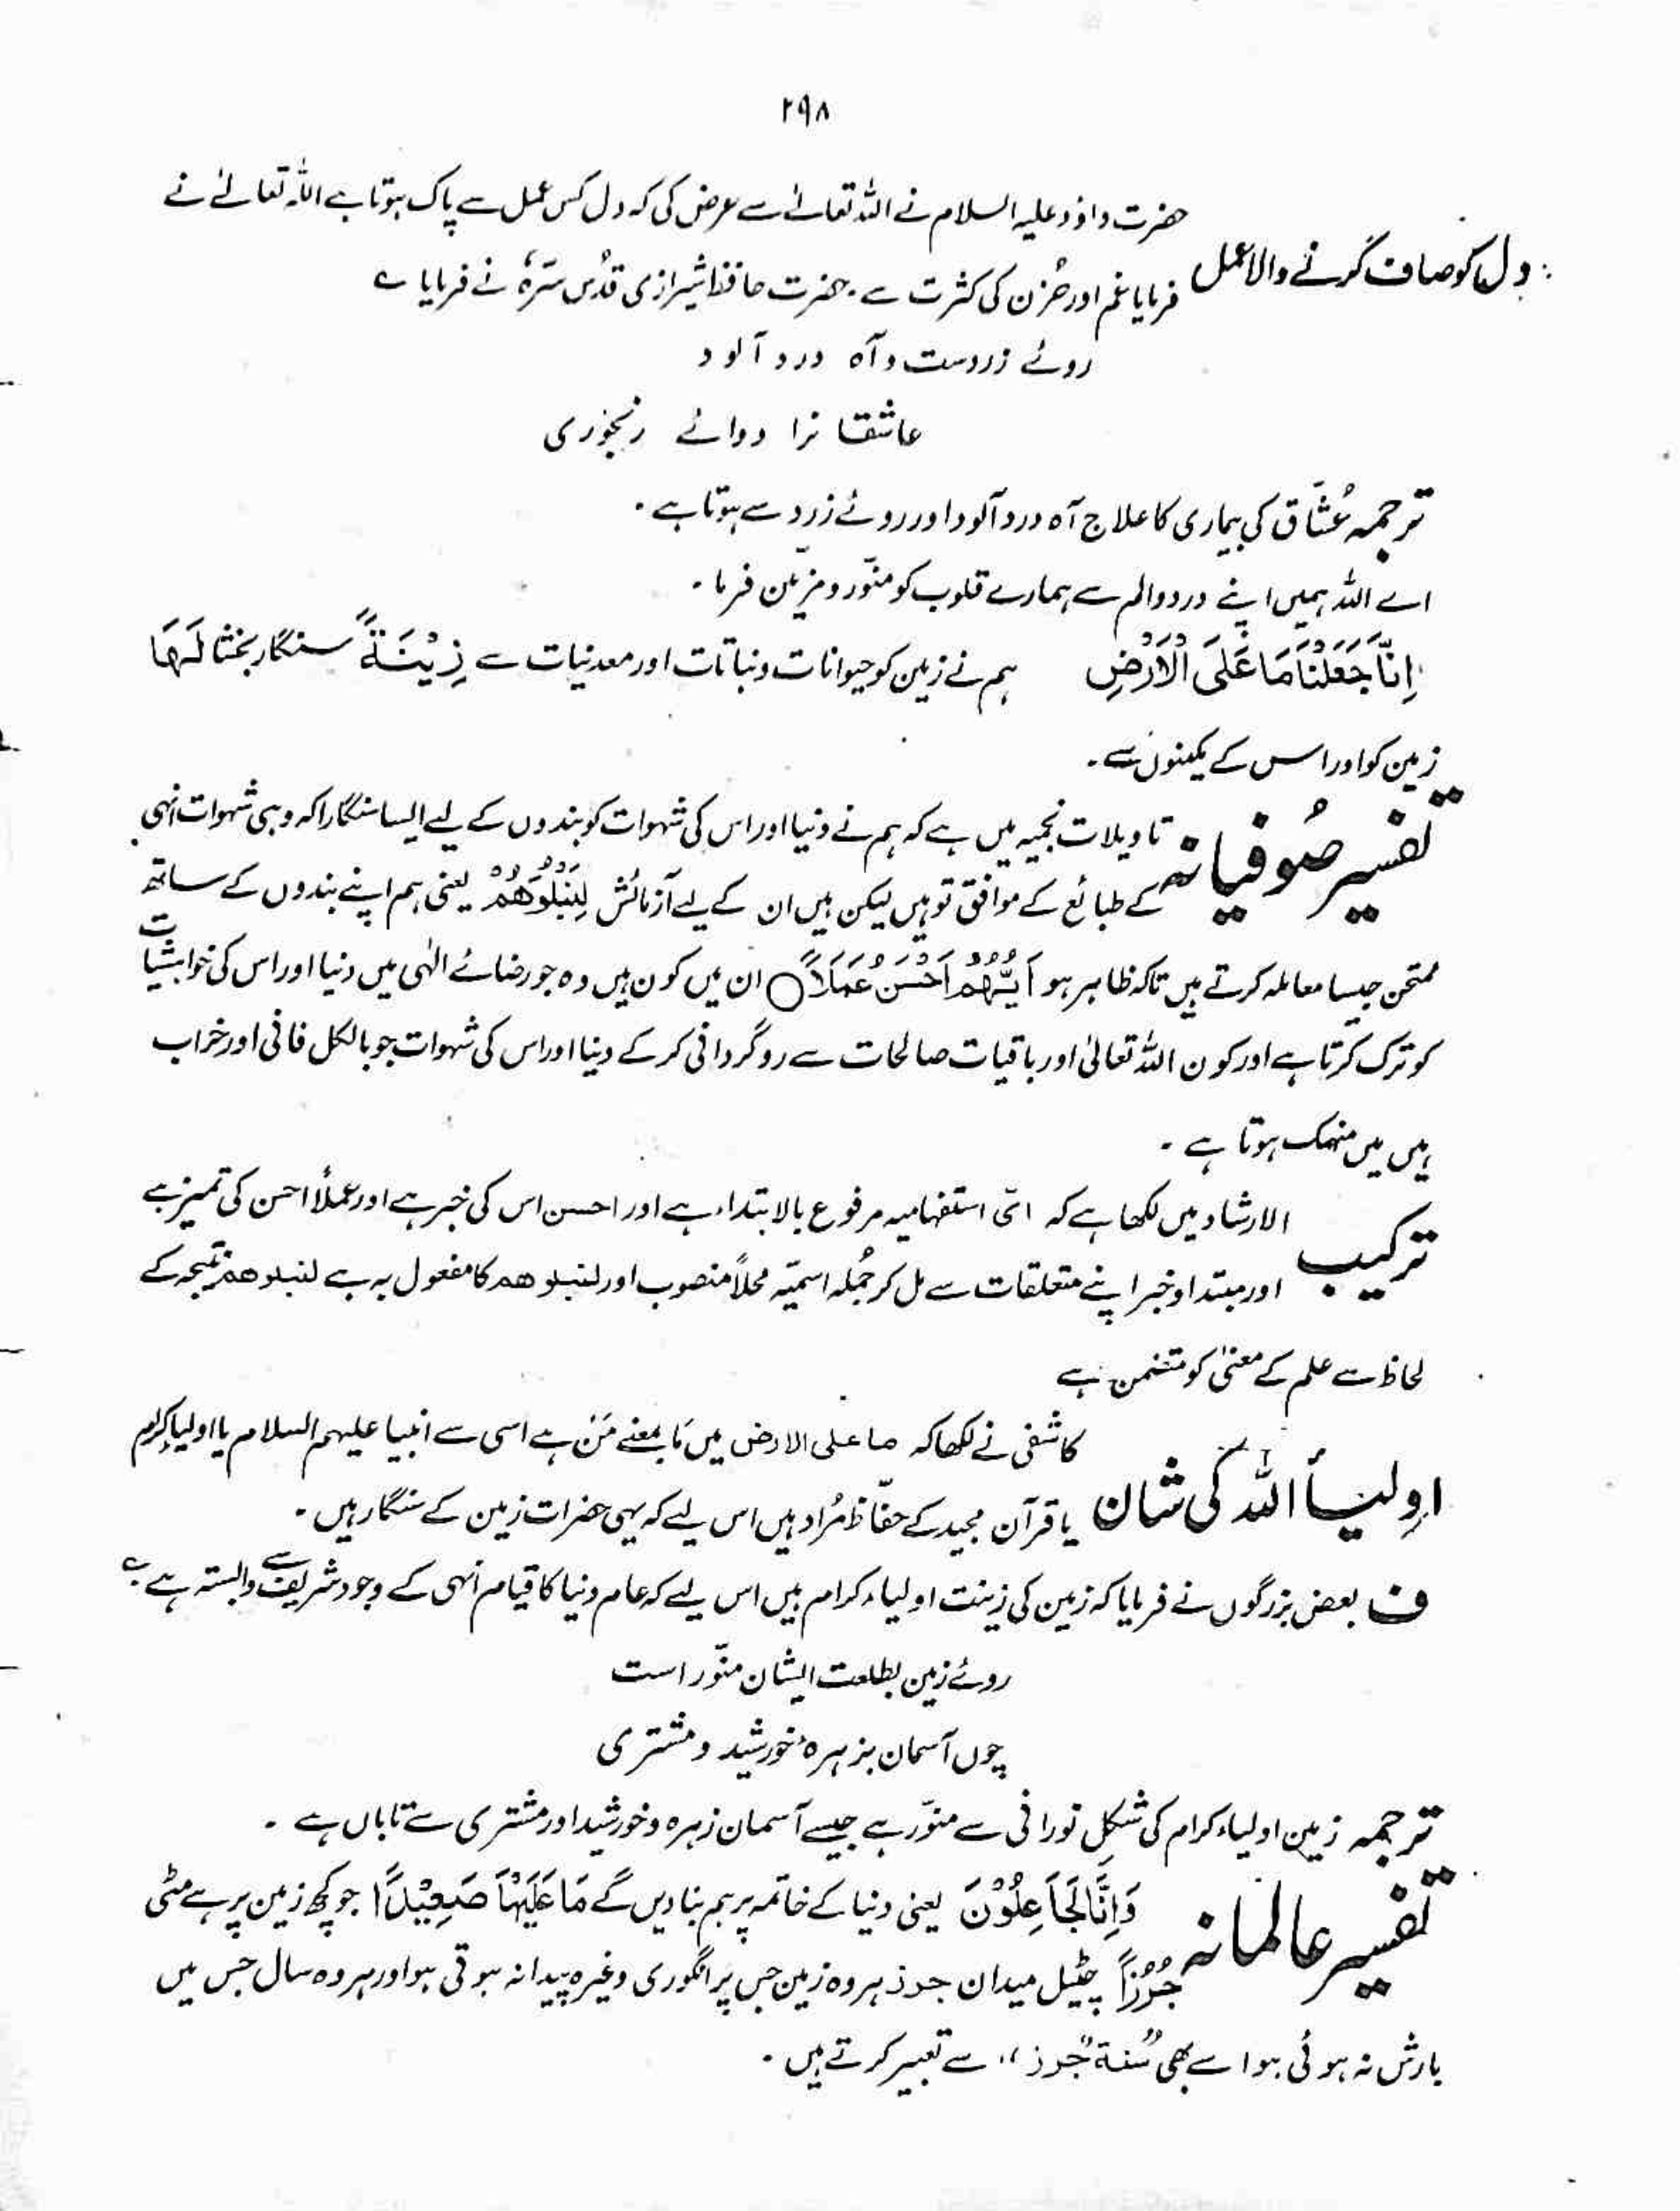 ۲۹۸
حضرت داؤد علیہ السلام نے اللہ تعالےٰ سے عرض کی کہ دل کس عمل سے پاک ہوتا ہے اللہ تعالےٰ نے
دل کو صاف کرنے والا عمل
فرمایا غم اور حُزن کی کثرت سے ۔ حضرت حافظ شیرازی قدُس سّرہٗ نے فرمایا ے
روئے زردست و آہ درد آلود
عاشقا نرا دوائے رنجوری
ترجمہ عُشّاق کی بیماری کا علاج آہ درد آلود اور روئے زرد سے ہوتا ہے ۔
اے اللہ ہمیں اپنے درد والم سے ہمارے قلوب کو منّور و مزیّن فرما ۔
اِنَّا جَعَلْنَا مَا عَلَی الْاَرْضِ ہم نے زمین کو حیوانات و نباتات اور معدنیات سے زِیْنَۃً سنگار بخشا لَہَا
زمین کو اور اس کے مکینوں سے ۔
تفسیر صُوفیانہ
تاویلات نجمیہ میں ہے کہ ہم نے دنیا اور اس کی شہوات کو بندوں کے لیے ایسا سنگارا کہ وہی شہوات انہی
کے طبائع کے موافق تو ہیں لیکن ہیں ان کے لیے آزمائش لِنَبْلُوَھُمْ یعنی ہم اپنے بندوں کے ساتھ
ممتحن جیسا معاملہ کرتے ہیں تاکہ ظاہر ہو اَیُّہُمْ اَحْسَنُ عَمَلًا ○ ان میں کون ہیں وہ جو رضائے الٰہی میں دنیا اور اس کی خواہشات
کو ترک کرتا ہے اور کون اللہ تعالیٰ اور باقیات صالحات سے روگردانی کر کے دنیا اور اس کی شہوات جو بالکل فانی اور خراب
ہیں میں منہمک ہوتا ہے ۔
ترکیب
الارشاد میں لکھا ہے کہ ائی استفہامیہ مرفوع بالابتداء ہے اور احسن اس کی خبر ہے اور عملاً احسن کی تمیز ہے
اور مبتدا و خبر اپنے متعلقات سے مل کر جُملہ اسمیّہ محلاً منصوب اور لنبلوھم کا مفعول بہ ہے لنبلوھم نتیجہ کے
لحاظ سے علم کے معنیٰ کو متضمن ہے
اولیأ اللہ کی شان
کاشفی نے لکھا کہ ما علی الارض میں مَا بمعنے مَنْ ہے اسی سے انبیا علیہم السلام یا اولیا کرام
یا قرآن مجید کے حفّاظ مُراد ہیں اس لیے کہ یہی حضرات زمین کے سنگار ہیں ۔
ف بعض بزرگوں نے فرمایا کہ زمین کی زینت اولیاء کرام ہیں اس لیے کہ عام دنیا کا قیام انہی کے وجود شریف سے وابستہ ہے ے
روئے زمین بطلعت ایشان منّور است
چوں آسمان بزہرہ خورشید و مشتری
ترجمہ زمین اولیاء کرام کی شکلِ نورانی سے منوّر ہے جیسے آسمان زہرہ و خورشید اور مشتری سے تاباں ہے ۔
تفسیر عالمانہ
وَاِنَّا لَجَاعِلُوْنَ یعنی دنیا کے خاتمہ پر ہم بنا دیں گے مَا عَلَیْہَا صَعِیْدًا جو کچھ زمین پر ہے مٹی
جُرُزًا چٹیل میدان جرز ہر وہ زمین جس پر انگوری وغیرہ پیدا نہ ہوتی ہو اور ہر وہ سال جس میں
بارش نہ ہوئی ہو اسے بھی "سَنۃ جرز" سے تعبیر کرتے ہیں ۔